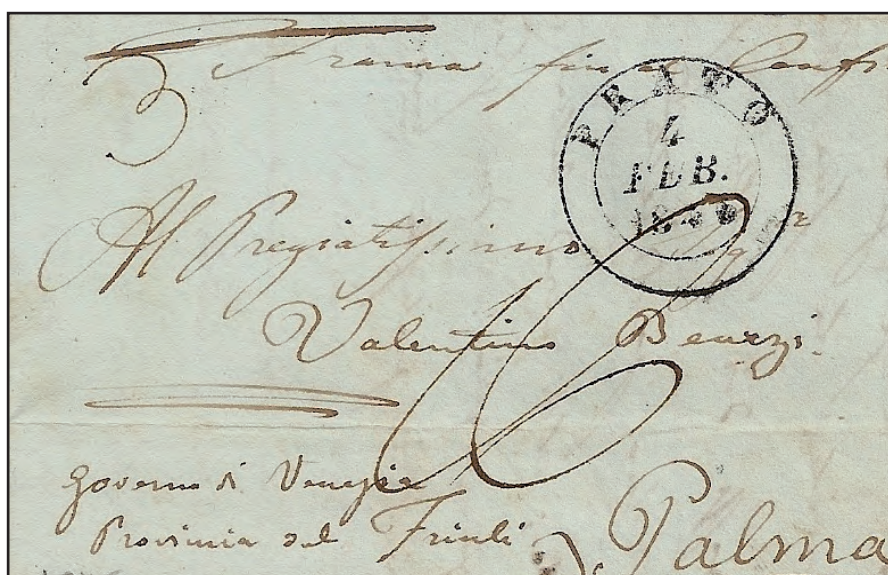 Franca fin al Conf
3
PRATO
4
FEB.
Al Pregiatissimo Sigr
Valentino Bearzi.
Governo di Venezia
Provincia del Friuli
Palma